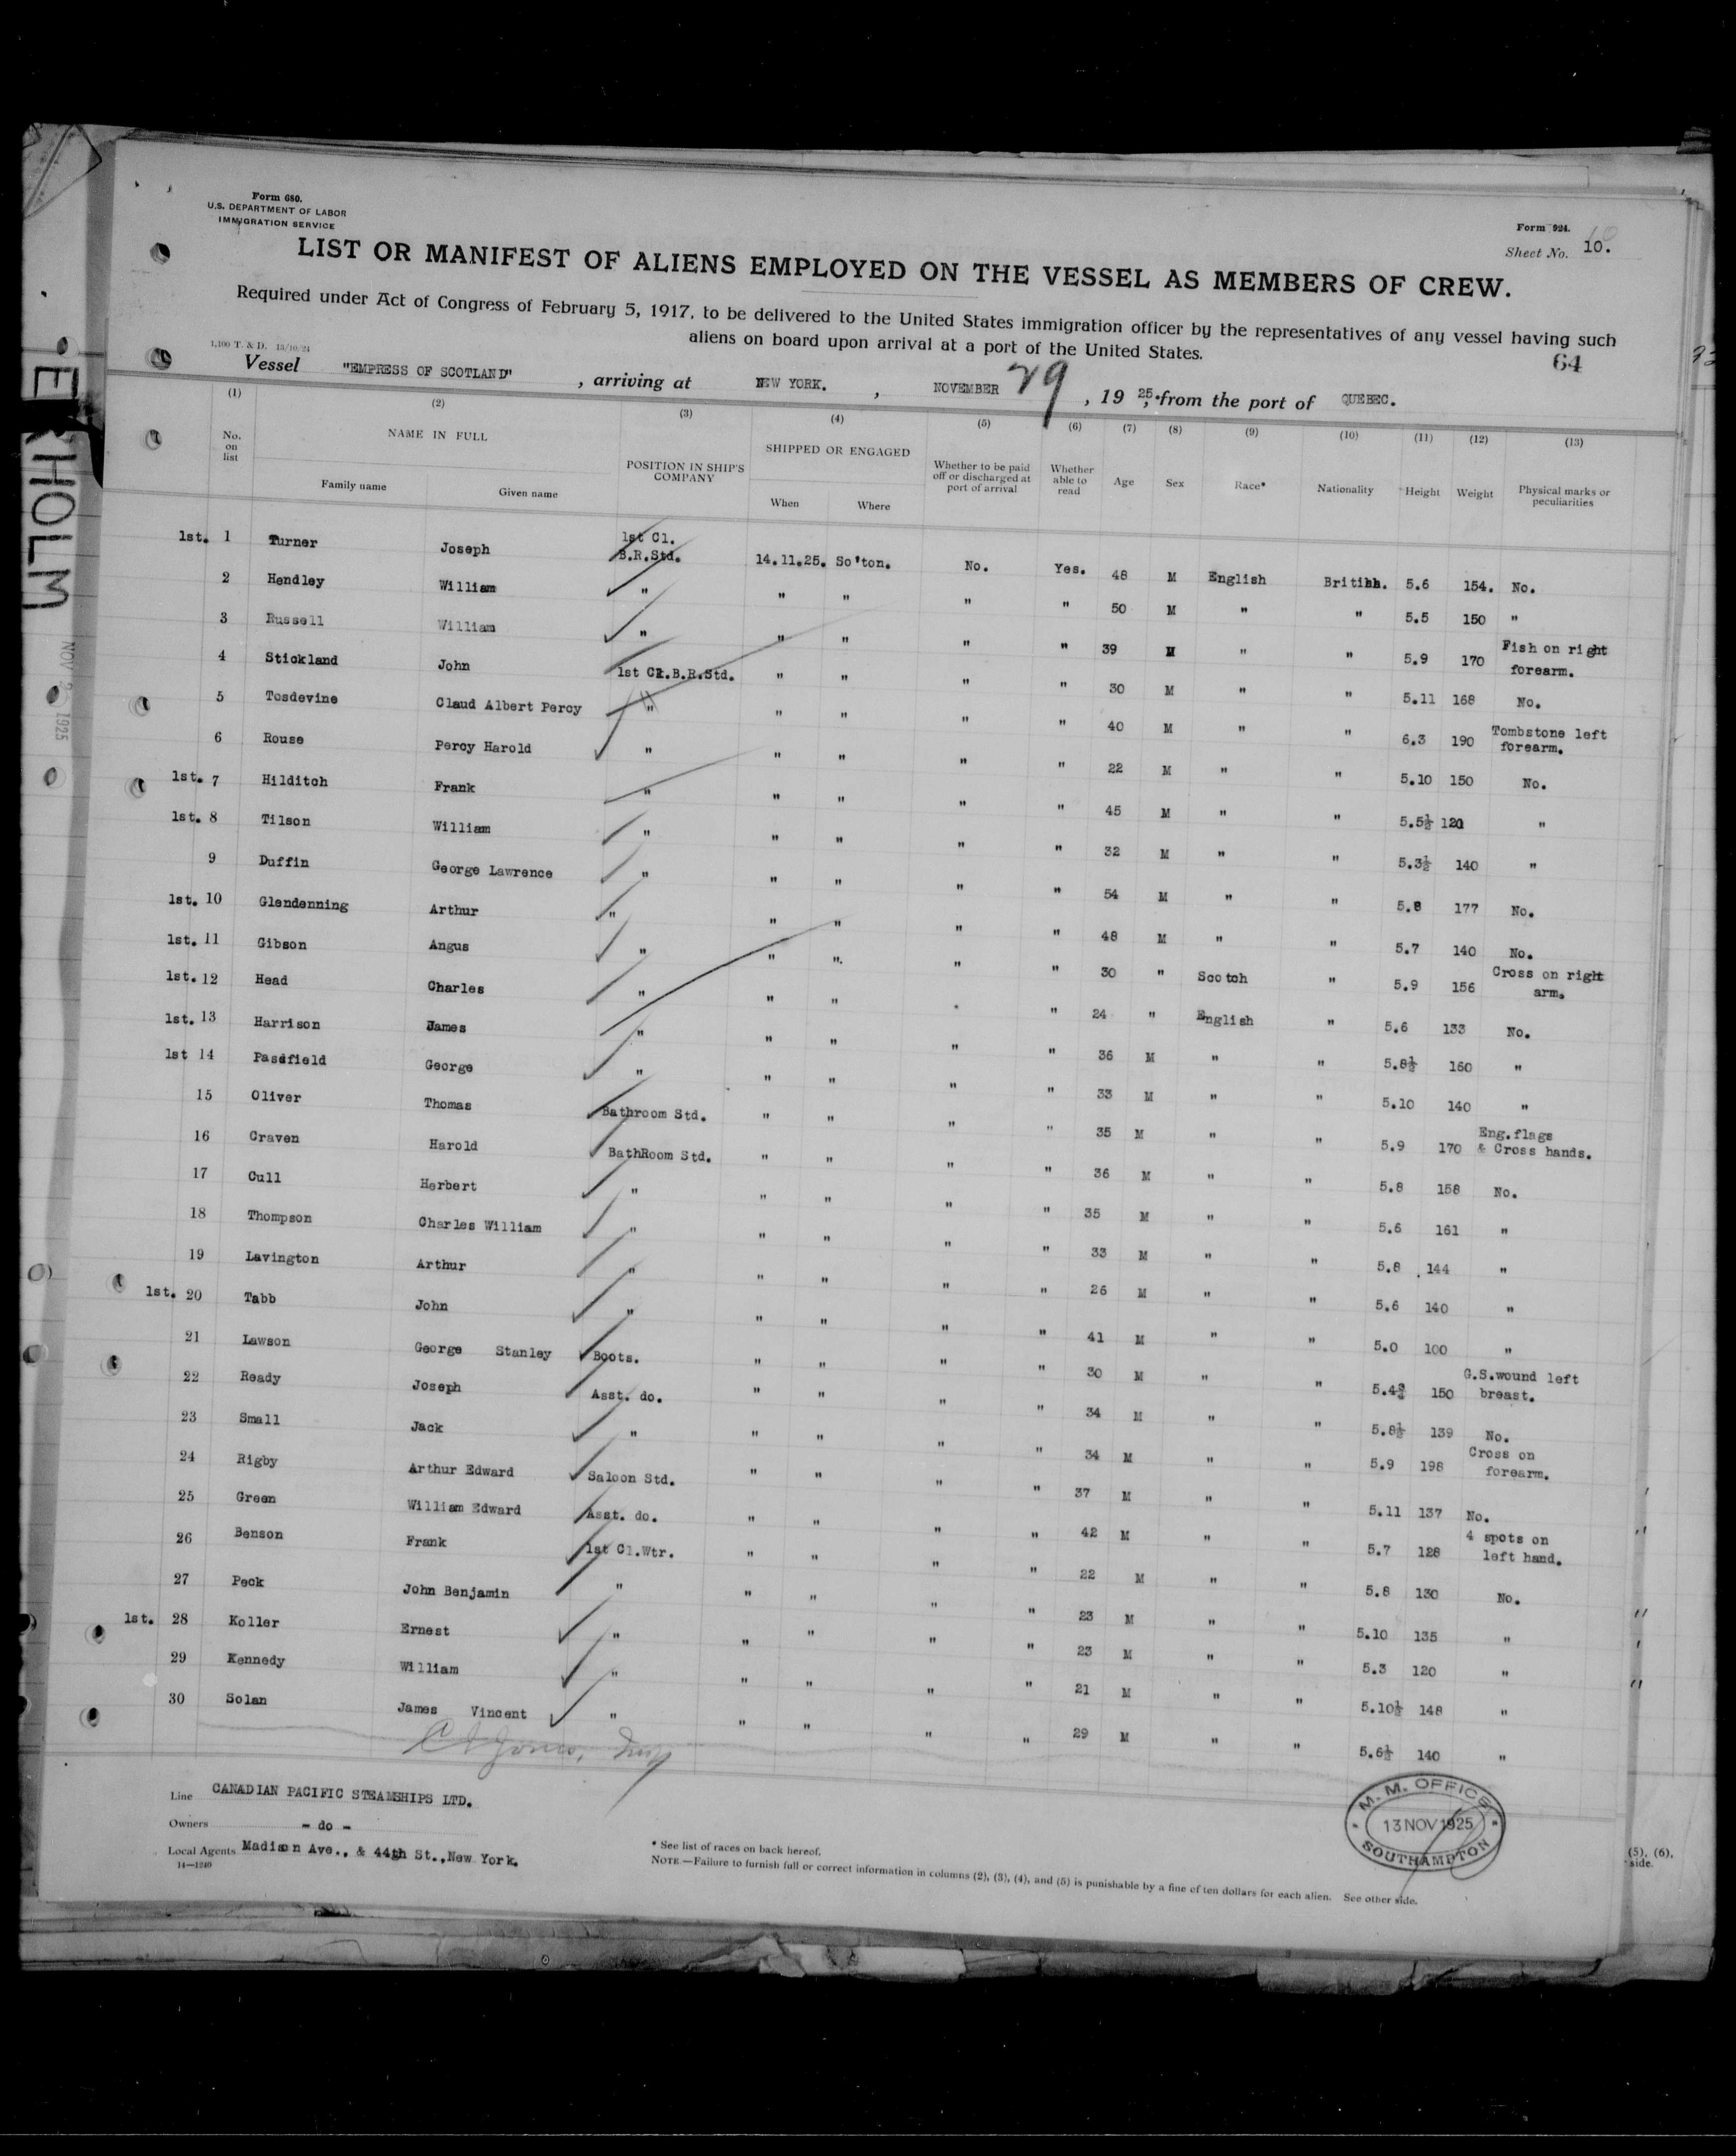 Form 680.
U.S. DEPARTMENT OF LABOR
IMMIGRATION SERVICE
Form 924.
Sheet No. 10.
LIST OR MANIFEST OF ALIENS EMPLOYED ON THE VESSEL AS MEMBERS OF CREW.
Required under Act of Congress of February 5, 1917, to be delivered to the United States immigration officer by the representatives of any vessel having such
aliens on board upon arrival at a port of the United States.
64
1,100 T. & D. 13/10/24
Vessel "EMPRESS OF SCOTLAND" , arriving at NEW YORK. , NOVEMBER 29 , 19 25, from the port of QUEBEC.
(1) (2) (3) (4) (5) (6) (7) (8) (9) (10) (11) (12) (13)
No. on list NAME IN FULL Family name Given name POSITION IN SHIP'S COMPANY SHIPPED OR ENGAGED When Where Whether to be paid off or discharged at port of arrival Whether able to read Age Sex Race* Nationality Height Weight Physical marks or peculiarities
1st. 1 Turner Joseph 1st Cl. B.R.Std. 14.11.25. So'ton. No. Yes. 48 M English Britihh. 5.6 154. No.
2 Hendley William " " " " " 50 M " " 5.5 150 "
3 Russell William " " " " " 39 M " " 5.9 170 Fish on right forearm.
4 Stickland John 1st Cl.B.R.Std. " " " " 30 M " " 5.11 168 No.
5 Tosdevine Claud Albert Percy " " " " " 40 M " " 6.3 190 Tombstone left forearm.
6 Rouse Percy Harold " " " " " 22 M " " 5.10 150 No.
1st. 7 Hilditch Frank " " " " " 45 M " " 5.5½ 120 "
1st. 8 Tilson William " " " " " 32 M " " 5.3½ 140 "
9 Duffin George Lawrence " " " " " 54 M " " 5.8 177 No.
1st. 10 Glendenning Arthur " " " " " 48 M " " 5.7 140 No.
1st. 11 Gibson Angus " " ". " " 30 " Scotch " 5.9 156 Cross on right arm.
1st. 12 Head Charles " " " " " 24 " English " 5.6 133 No.
1st. 13 Harrison James " " " " " 36 M " " 5.8½ 160 "
1st 14 Passfield George " " " " " 33 M " " 5.10 140 "
15 Oliver Thomas Bathroom Std. " " " " 35 M " " 5.9 170 Eng.flags & Cross hands.
16 Craven Harold BathRoom Std. " " " " 36 M " " 5.8 158 No.
17 Cull Herbert " " " " " 35 M " " 5.6 161 "
18 Thompson Charles William " " " " " 33 M " " 5.8 144 "
19 Lavington Arthur " " " " " 26 M " " 5.6 140 "
1st. 20 Tabb John " " " " " 41 M " " 5.0 100 "
21 Lawson George Stanley Boots. " " " " 30 M " " 5.4¾ 150 G.S.wound left breast.
22 Ready Joseph Asst. do. " " " " 34 M " " 5.8½ 139 No.
23 Small Jack " " " " " 34 M " " 5.9 198 Cross on forearm.
24 Rigby Arthur Edward Saloon Std. " " " " 37 M " " 5.11 137 No.
25 Green William Edward Asst. do. " " " " 42 M " " 5.7 128 4 spots on left hand.
26 Benson Frank 1st Cl.Wtr. " " " " 22 M " " 5.8 130 No.
27 Peck John Benjamin " " " " " 23 M " " 5.10 135 "
1st. 28 Koller Ernest " " " " " 23 M " " 5.3 120 "
29 Kennedy William " " " " " 21 M " " 5.10½ 148 "
30 Solan James Vincent " " " " " 29 M " " 5.6½ 140 "
Line CANADIAN PACIFIC STEAMSHIPS LTD.
Owners - do -
Local Agents Madison Ave., & 44th St.,New York.
14—1240
* See list of races on back hereof.
NOTE.—Failure to furnish full or correct information in columns (2), (3), (4), and (5) is punishable by a fine of ten dollars for each alien. See other side.
M. M. OFFICE
13 NOV 1925
SOUTHAMPTON
(5), (6),
side.
HOLM
NOV 2 1925